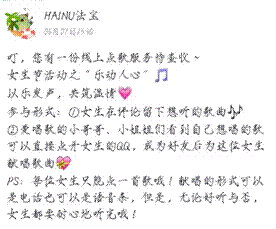 HAINU法宝
叮，您有一份线上点歌服务待查收~
女生节活动之“乐动人心”🎵
以乐发声，共筑温情💗
参与形式：①女生在评论留下想听的歌曲🎶
②爱唱歌的小哥哥、小姐姐们看到自己想唱的歌
可以直接点开女生的QQ，成为好友后为这位女生
献唱歌曲💖
PS：每位女生只能点一首歌哦！献唱的形式可以
是电话也可以是语音条，但是，无论好听与否，
女生都要耐心地听完哦！